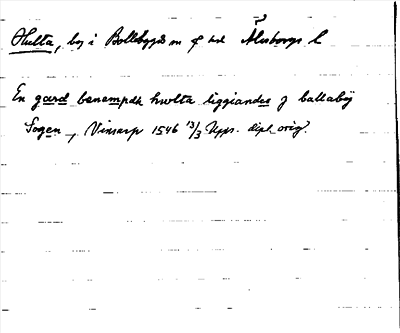 Hulta, by i Bollebygds sn o hd Älvsborgs l
En gard benempdh hwlta liggiandes j ballabÿ
Sogen, Vinsarp 1546 13/3 Upps. dipl. orig.